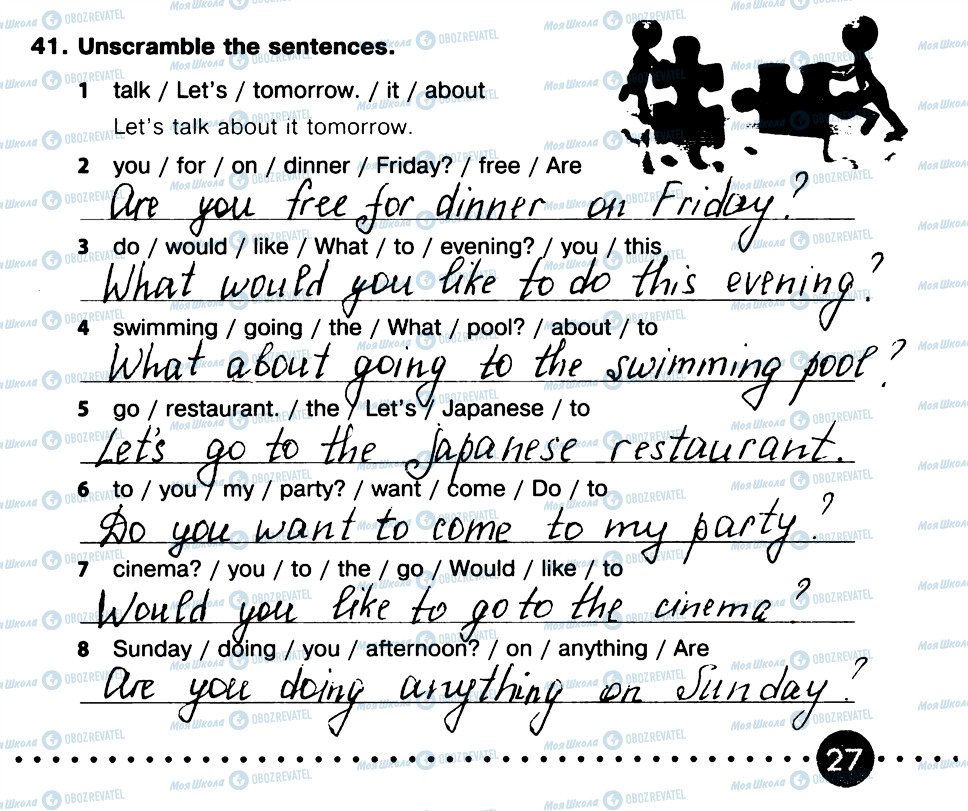 41. Unscramble the sentences.
1 talk / Let's / tomorrow. / it / about
Let's talk about it tomorrow.
2 you / for / on / dinner / Friday? / free / Are
Are you free for dinner on Friday?
3 do / would / like / What / to / evening? / you / this
What would you like to do this evening?
4 swimming / going / the / What / pool? / about / to
What about going to the swimming pool?
5 go / restaurant. / the / Let's / Japanese / to
Let's go to the Japanese restaurant.
6 to / you / my / party? / want / come / Do / to
Do you want to come to my party?
7 cinema? / you / to / the / go / Would / like / to
Would you like to go to the cinema?
8 Sunday / doing / you / afternoon? / on / anything / Are
Are you doing anything on Sunday?
27
Моя Школа OBOZREVATEL